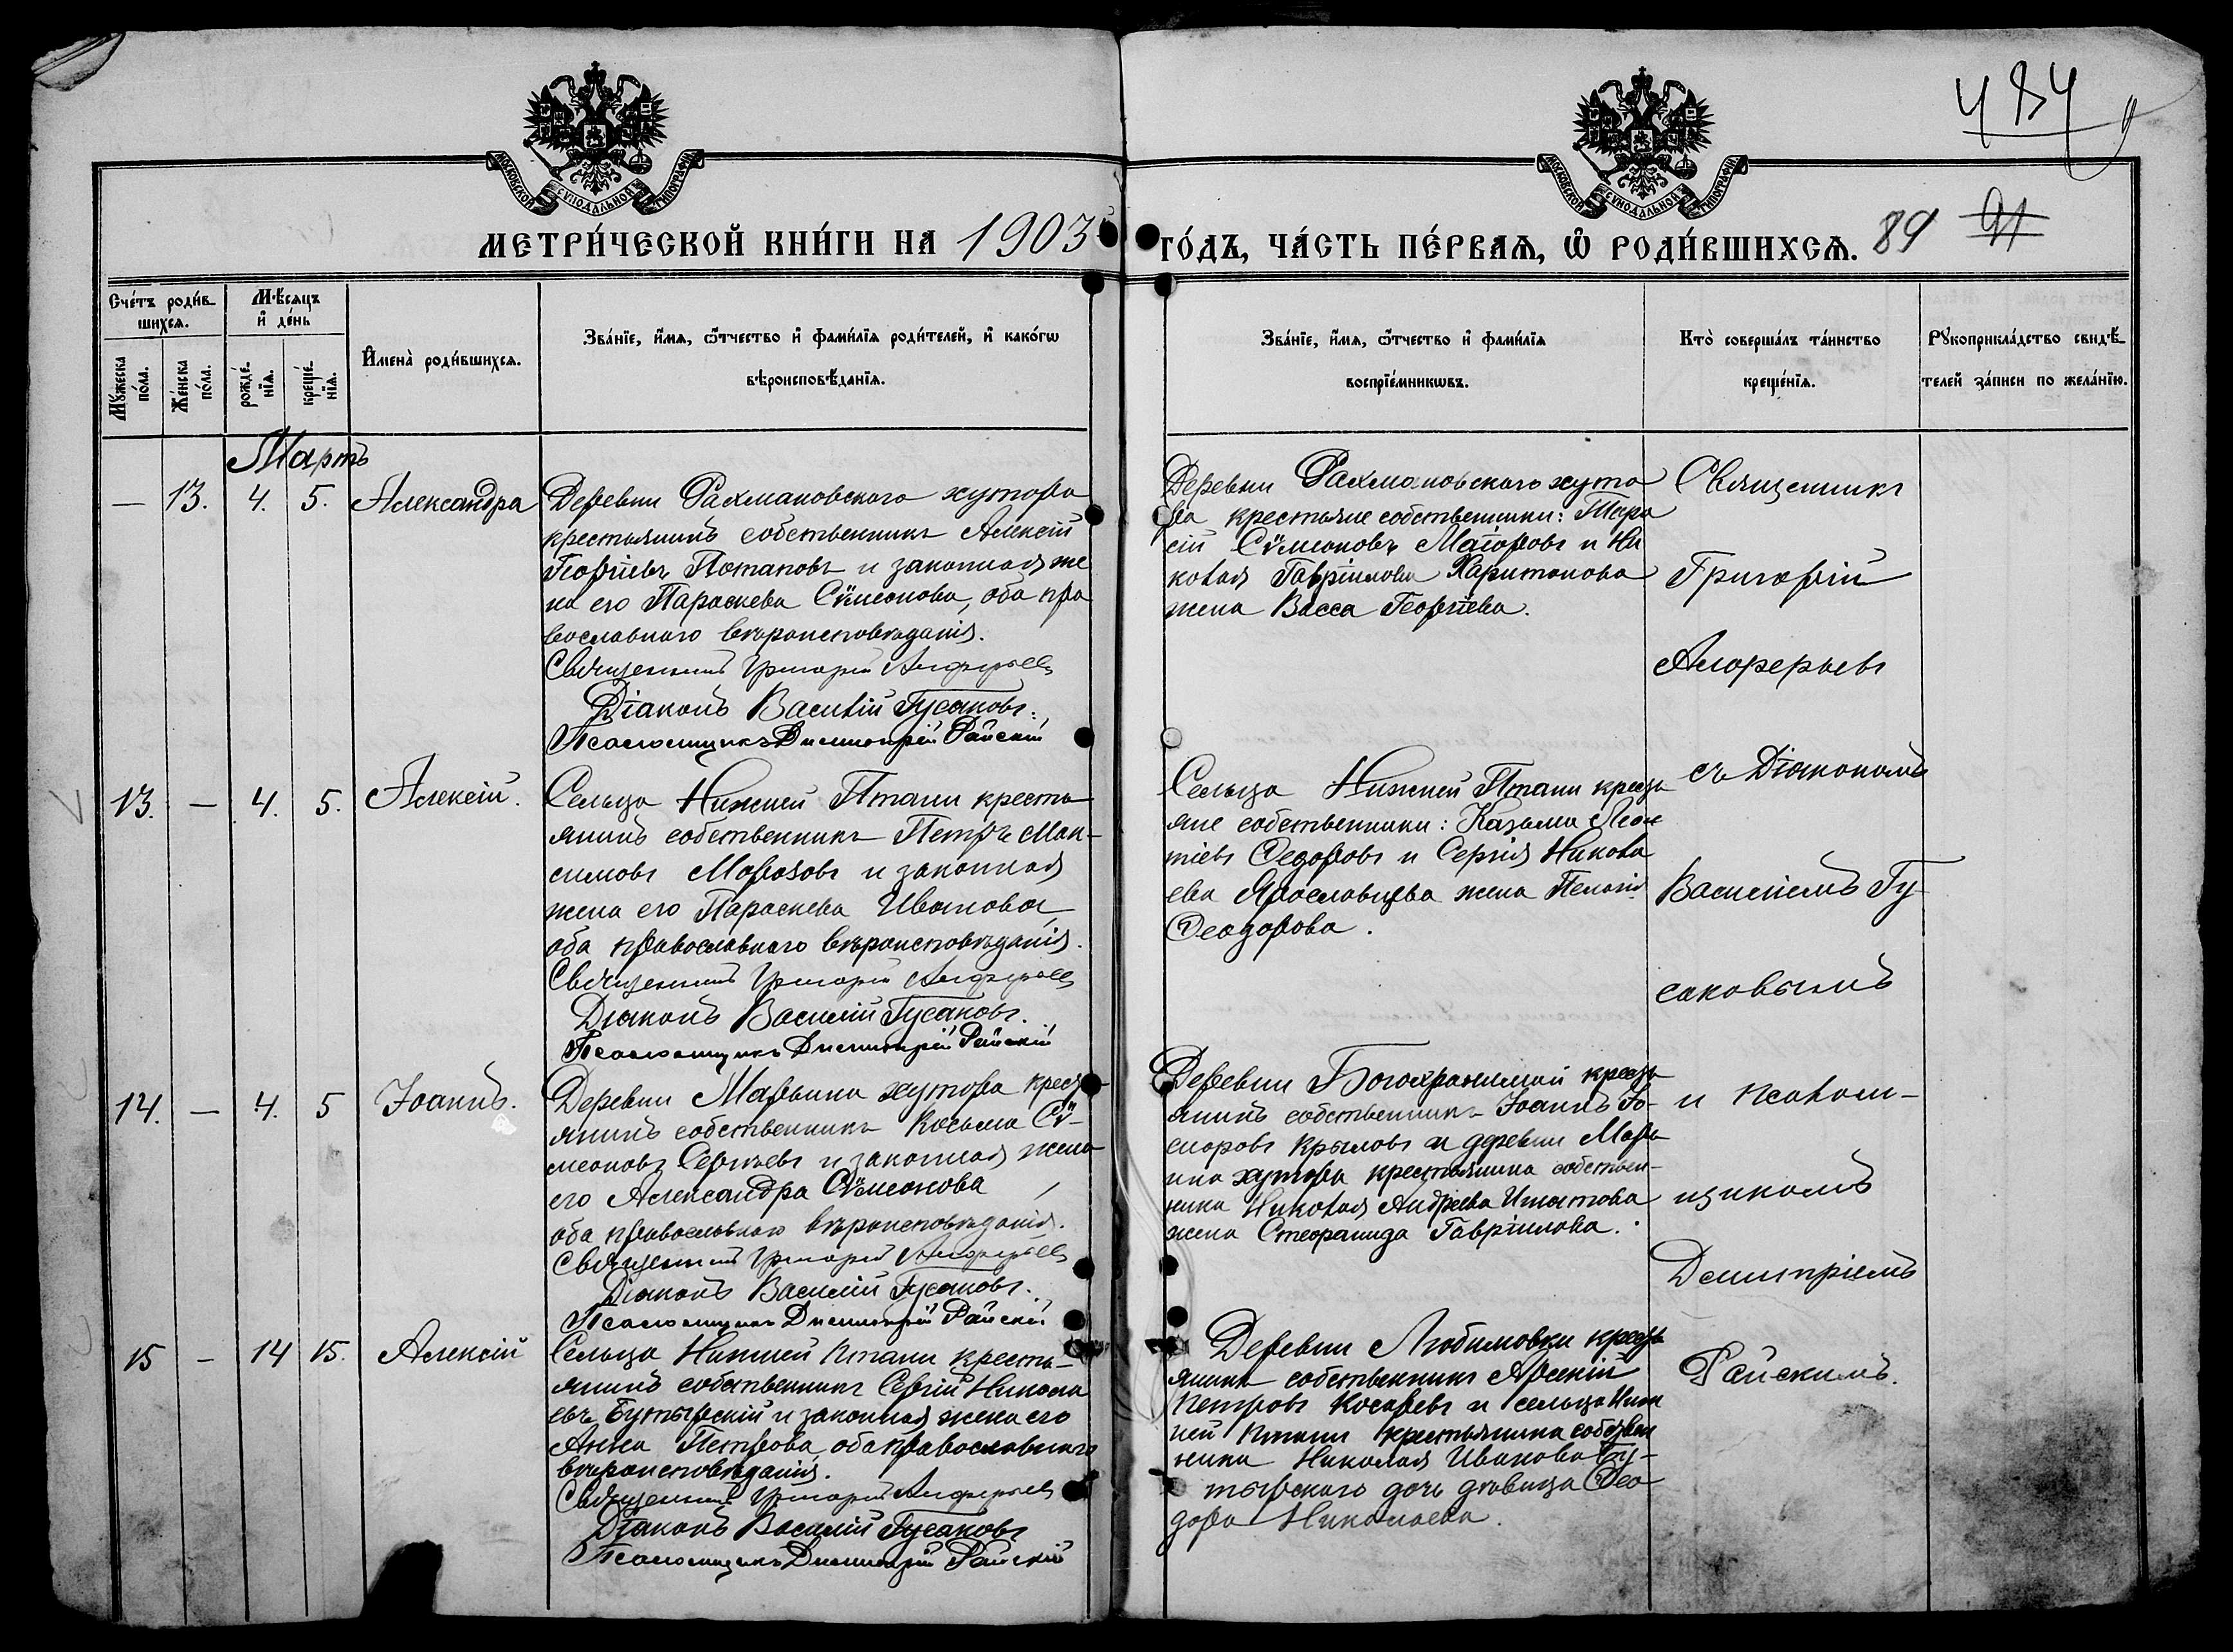 484
МОСКОВСКОЙ СѴНОДАЛЬНОЙ ТИПОГРАФІИ
МОСКОВСКОЙ СѴНОДАЛЬНОЙ ТИПОГРАФІИ
МЕТРИ́ЧЕСКОЙ КНИ́ГИ НА 1903
ГО́ДЪ, ЧА́СТЬ ПЕ́РВАѦ, Ѽ РОДИ́ВШИХСѦ. 89 91
Сче́тъ роди́вшихсѧ.
Мꙋ́жеска по́ла.
Же́нска по́ла.
Мѣ́сяцъ и҆ де́нь
рожде́нїѧ.
креще́нїѧ.
И҆мена̀ роди́вшихсѧ.
Зва́нїе, и҆́мѧ, ѻ҆́тчество и҆ фами́лїѧ роди́телей, и҆ како́гѡ
вѣроисповѣ́данїѧ.
Зва́нїе, и҆́мѧ, ѻ҆́тчество и҆ фами́лїѧ
воспрїе́мникѡвъ.
Кто̀ соверша́лъ та́инство
креще́нїѧ.
Рꙋкоприкла́дство свидѣ́-
телей за́писи по жела́нїю.
Мартъ
— 13. 4. 5. Александра
Деревни Рахмановскаго хутора
крестьянинъ собственникъ Алексій
Георгіевъ Потаповъ и законная же
на его Параскева Сѵмеонова, оба пра
вославнаго вѣроисповѣданія.
Священникъ Григорій Алферьевъ
Діаконъ Василій Гусаковъ.
Псаломщикъ Димитрій Райскій
Деревни Рахмановскаго хуто
ра крестьяне собственники: Тара
сій Сѵмеоновъ Маіоровъ и Ни
колая Гавріилова Харитонова
жена Васса Георгіева.
13. — 4. 5. Алексій.
Сельца Нижней Птани кресть
янинъ собственникъ Петръ Мак-
симовъ Морозовъ и законная
жена его Параскева Иванова,
оба православнаго вѣроисповѣданія.
Священникъ Григорій Алферьевъ
Діаконъ Василій Гусаковъ.
Псаломщикъ Димитрій Райскій
Сельца Нижней Птани кресть
яне собственники: Козьма Леон
тіевъ Ѳедоровъ и Сергія Никола
ева Ярославцева жена Пелагія
Ѳеодорова.
14. — 4. 5 Іоаннъ.
Деревни Марьина хутора крест-
янинъ собственникъ Косьма Сѵ-
меоновъ Сергѣевъ и законная жена
его Александра Сѵмеонова,
оба православнаго вѣроисповѣданія.
Священникъ Григорій Алферьевъ
Діаконъ Василій Гусаковъ.
Псаломщикъ Димитрій Райскій
Деревни Богохранимой кресть
янинъ собственникъ Іоаннъ
Крыловъ и деревни Марь
ина хутора крестьянина собствен-
ника Николая Андреева Игнатова
жена Стефанида Гавріилова.
15 — 14 15. Алексій
Сельца Нижней Птани кресть-
янинъ собственникъ Сергій Никола
евъ Бутырскій и законная жена его
Анна Петрова, оба православнаго
вѣроисповѣданія.
Священникъ Григорій Алферьевъ
Діаконъ Василій Гусаковъ
Псаломщикъ Димитрій Райскій
Деревни Любимовки кресть
янинъ собственникъ Арсеній
Петровъ Косаревъ и сельца Ниж
ней Птани крестьянина собствен
ника Николая Иванова Бу-
тырскаго дочь дѣвица Ѳео
дора Николаева.
Священникъ
Григорій
Алферьевъ
съ Діакономъ
Василіемъ Гу-
саковымъ
и псалом-
щикомъ
Димитріемъ
Райскимъ.